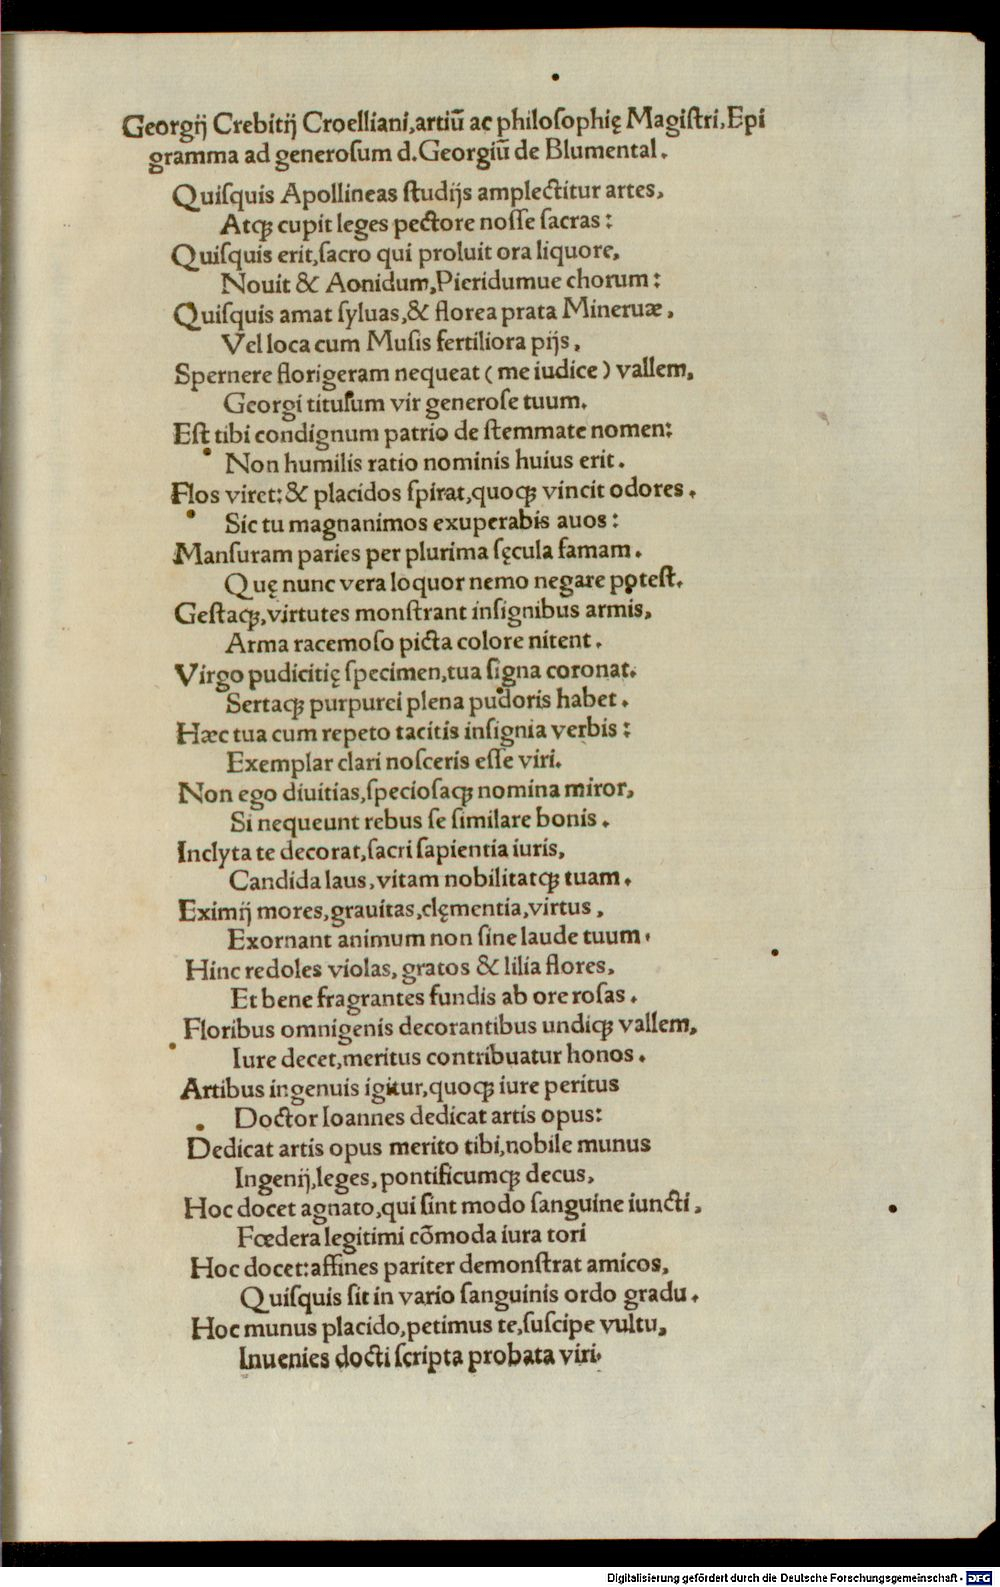 Georgij Crebitij Croelliani,artiū ac philoſophię Magiſtri,Epi
gramma ad generoſum d.Georgiū de Blumental.
Quiſquis Apollineas ſtudijs amplectitur artes,
Atqꝫ cupit leges pectore noſſe ſacras:
Quiſquis erit,ſacro qui proluit ora liquore,
Nouit & Aonidum,Pieridumue chorum:
Quiſquis amat ſyluas,& florea prata Mineruæ,
Vel loca cum Muſis fertiliora pijs,
Spernere florigeram nequeat (me iudice) vallem,
Georgi titulum vir generoſe tuum.
Eſt tibi condignum patrio de ſtemmate nomen:
Non humilis ratio nominis huius erit.
Flos viret:& placidos ſpirat,quoqꝫ vincit odores.
Sic tu magnanimos exuperabis auos:
Manſuram paries per plurima ſęcula famam.
Quę nunc vera loquor nemo negare poteſt.
Geſtaqꝫ,virtutes monſtrant inſignibus armis,
Arma racemoſo picta colore nitent.
Virgo pudicitię ſpecimen,tua ſigna coronat.
Sertaqꝫ purpurei plena pudoris habet.
Hæc tua cum repeto tacitis inſignia verbis:
Exemplar clari noſceris eſſe viri.
Non ego diuitias,ſpecioſaqꝫ nomina miror,
Si nequeunt rebus ſe ſimilare bonis.
Inclyta te decorat,ſacri ſapientia iuris,
Candida laus,vitam nobilitatqꝫ tuam.
Eximij mores,grauitas,clęmentia,virtus,
Exornant animum non ſine laude tuum.
Hinc redoles violas, gratos & lilia flores,
Et bene fragrantes fundis ab ore roſas.
Floribus omnigenis decorantibus undiqꝫ vallem,
Iure decet,meritus contribuatur honos.
Artibus ingenuis igitur,quoqꝫ iure peritus
Doctor Ioannes dedicat artis opus:
Dedicat artis opus merito tibi,nobile munus
Ingenij,leges,pontificumqꝫ decus,
Hoc docet agnato,qui ſint modo ſanguine iuncti,
Fœdera legitimi cōmoda iura tori
Hoc docet:affines pariter demonſtrat amicos,
Quiſquis ſit in vario ſanguinis ordo gradu.
Hoc munus placido,petimus te,ſuſcipe vultu,
Inuenies docti ſcripta probata viri.
Digitalisierung gefördert durch die Deutsche Forschungsgemeinschaft - DFG